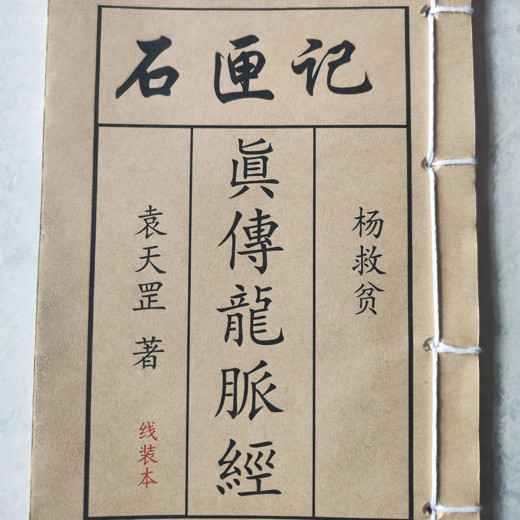 石匣记
杨救贫
真傳龍脈經
袁天罡 著
线装本